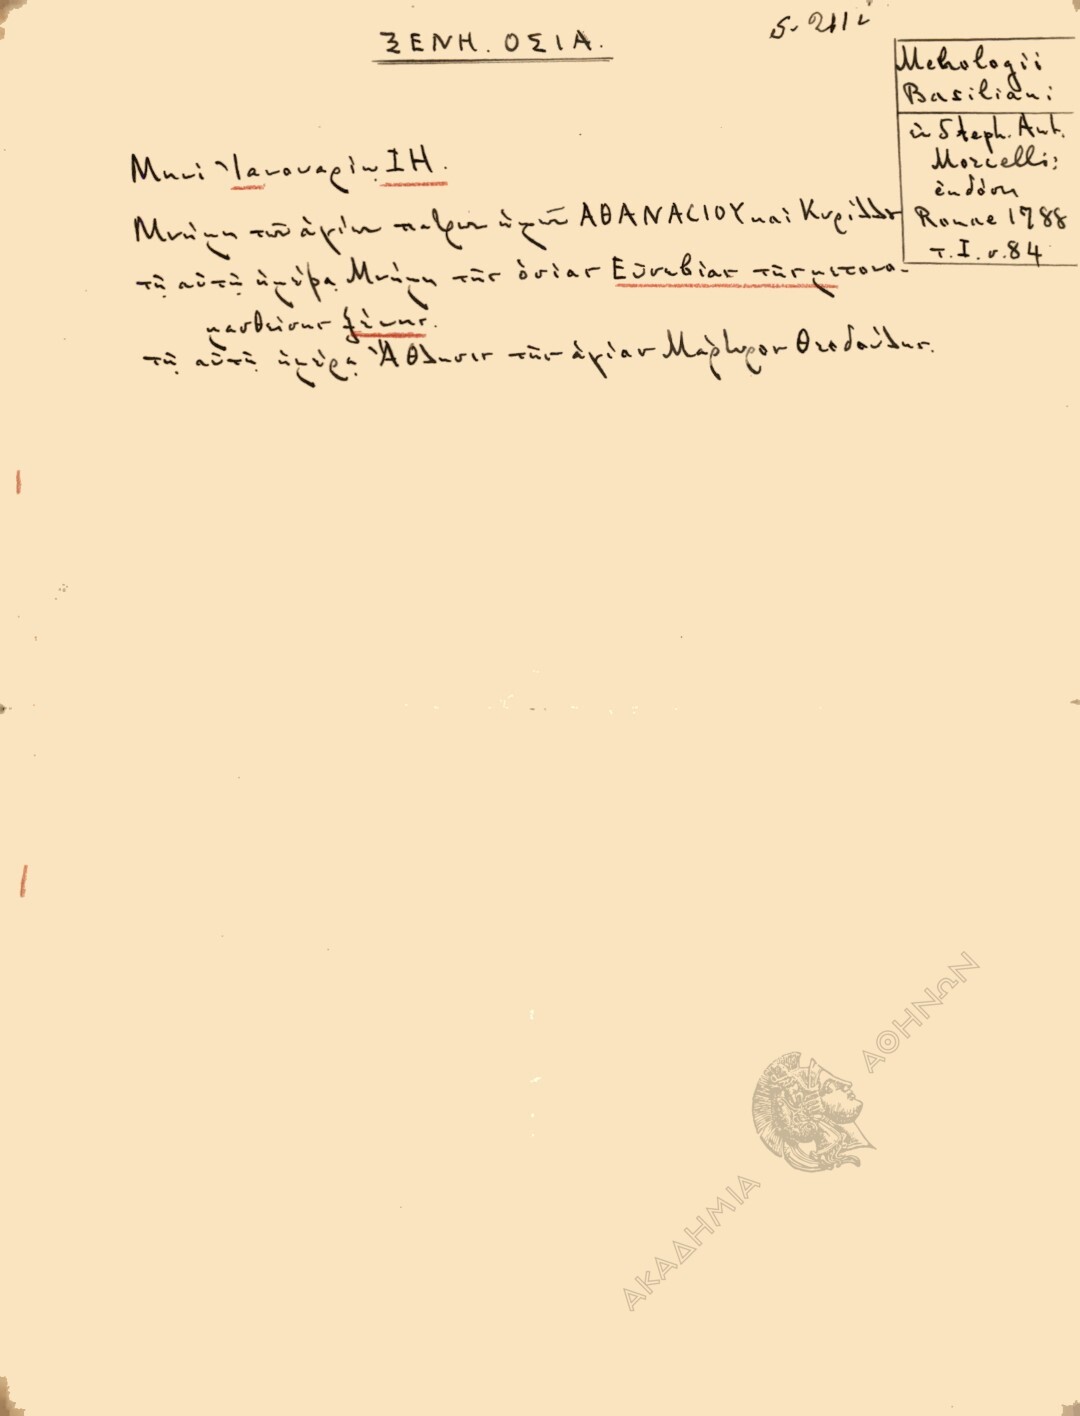 ΞΕΝΗ. ΟΣΙΑ.
Menologii
Basiliani
ἐν Steph. Ant.
Morcelli:
ἐκδόσει
Romae 1788
τ. I. σ. 84
Μηνὶ Ἰανουαρίῳ ΙΗ.
Μνήμη τῶν ἁγίων πατέρων ἡμῶν ΑΘΑΝΑCΙΟΥ καὶ Κυρίλλου
τῇ αὐτῇ ἡμέρᾳ Μνήμη τῆς ὁσίας Εὐσεβίας τῆς μετονο-
μασθείσης Ξένης.
τῇ αὐτῇ ἡμέρᾳ Ἄθλησις τῆς ἁγίας Μάρτυρος Θεοδούλης.
ΑΚΑΔΗΜΙΑ ΑΘΗΝΩΝ